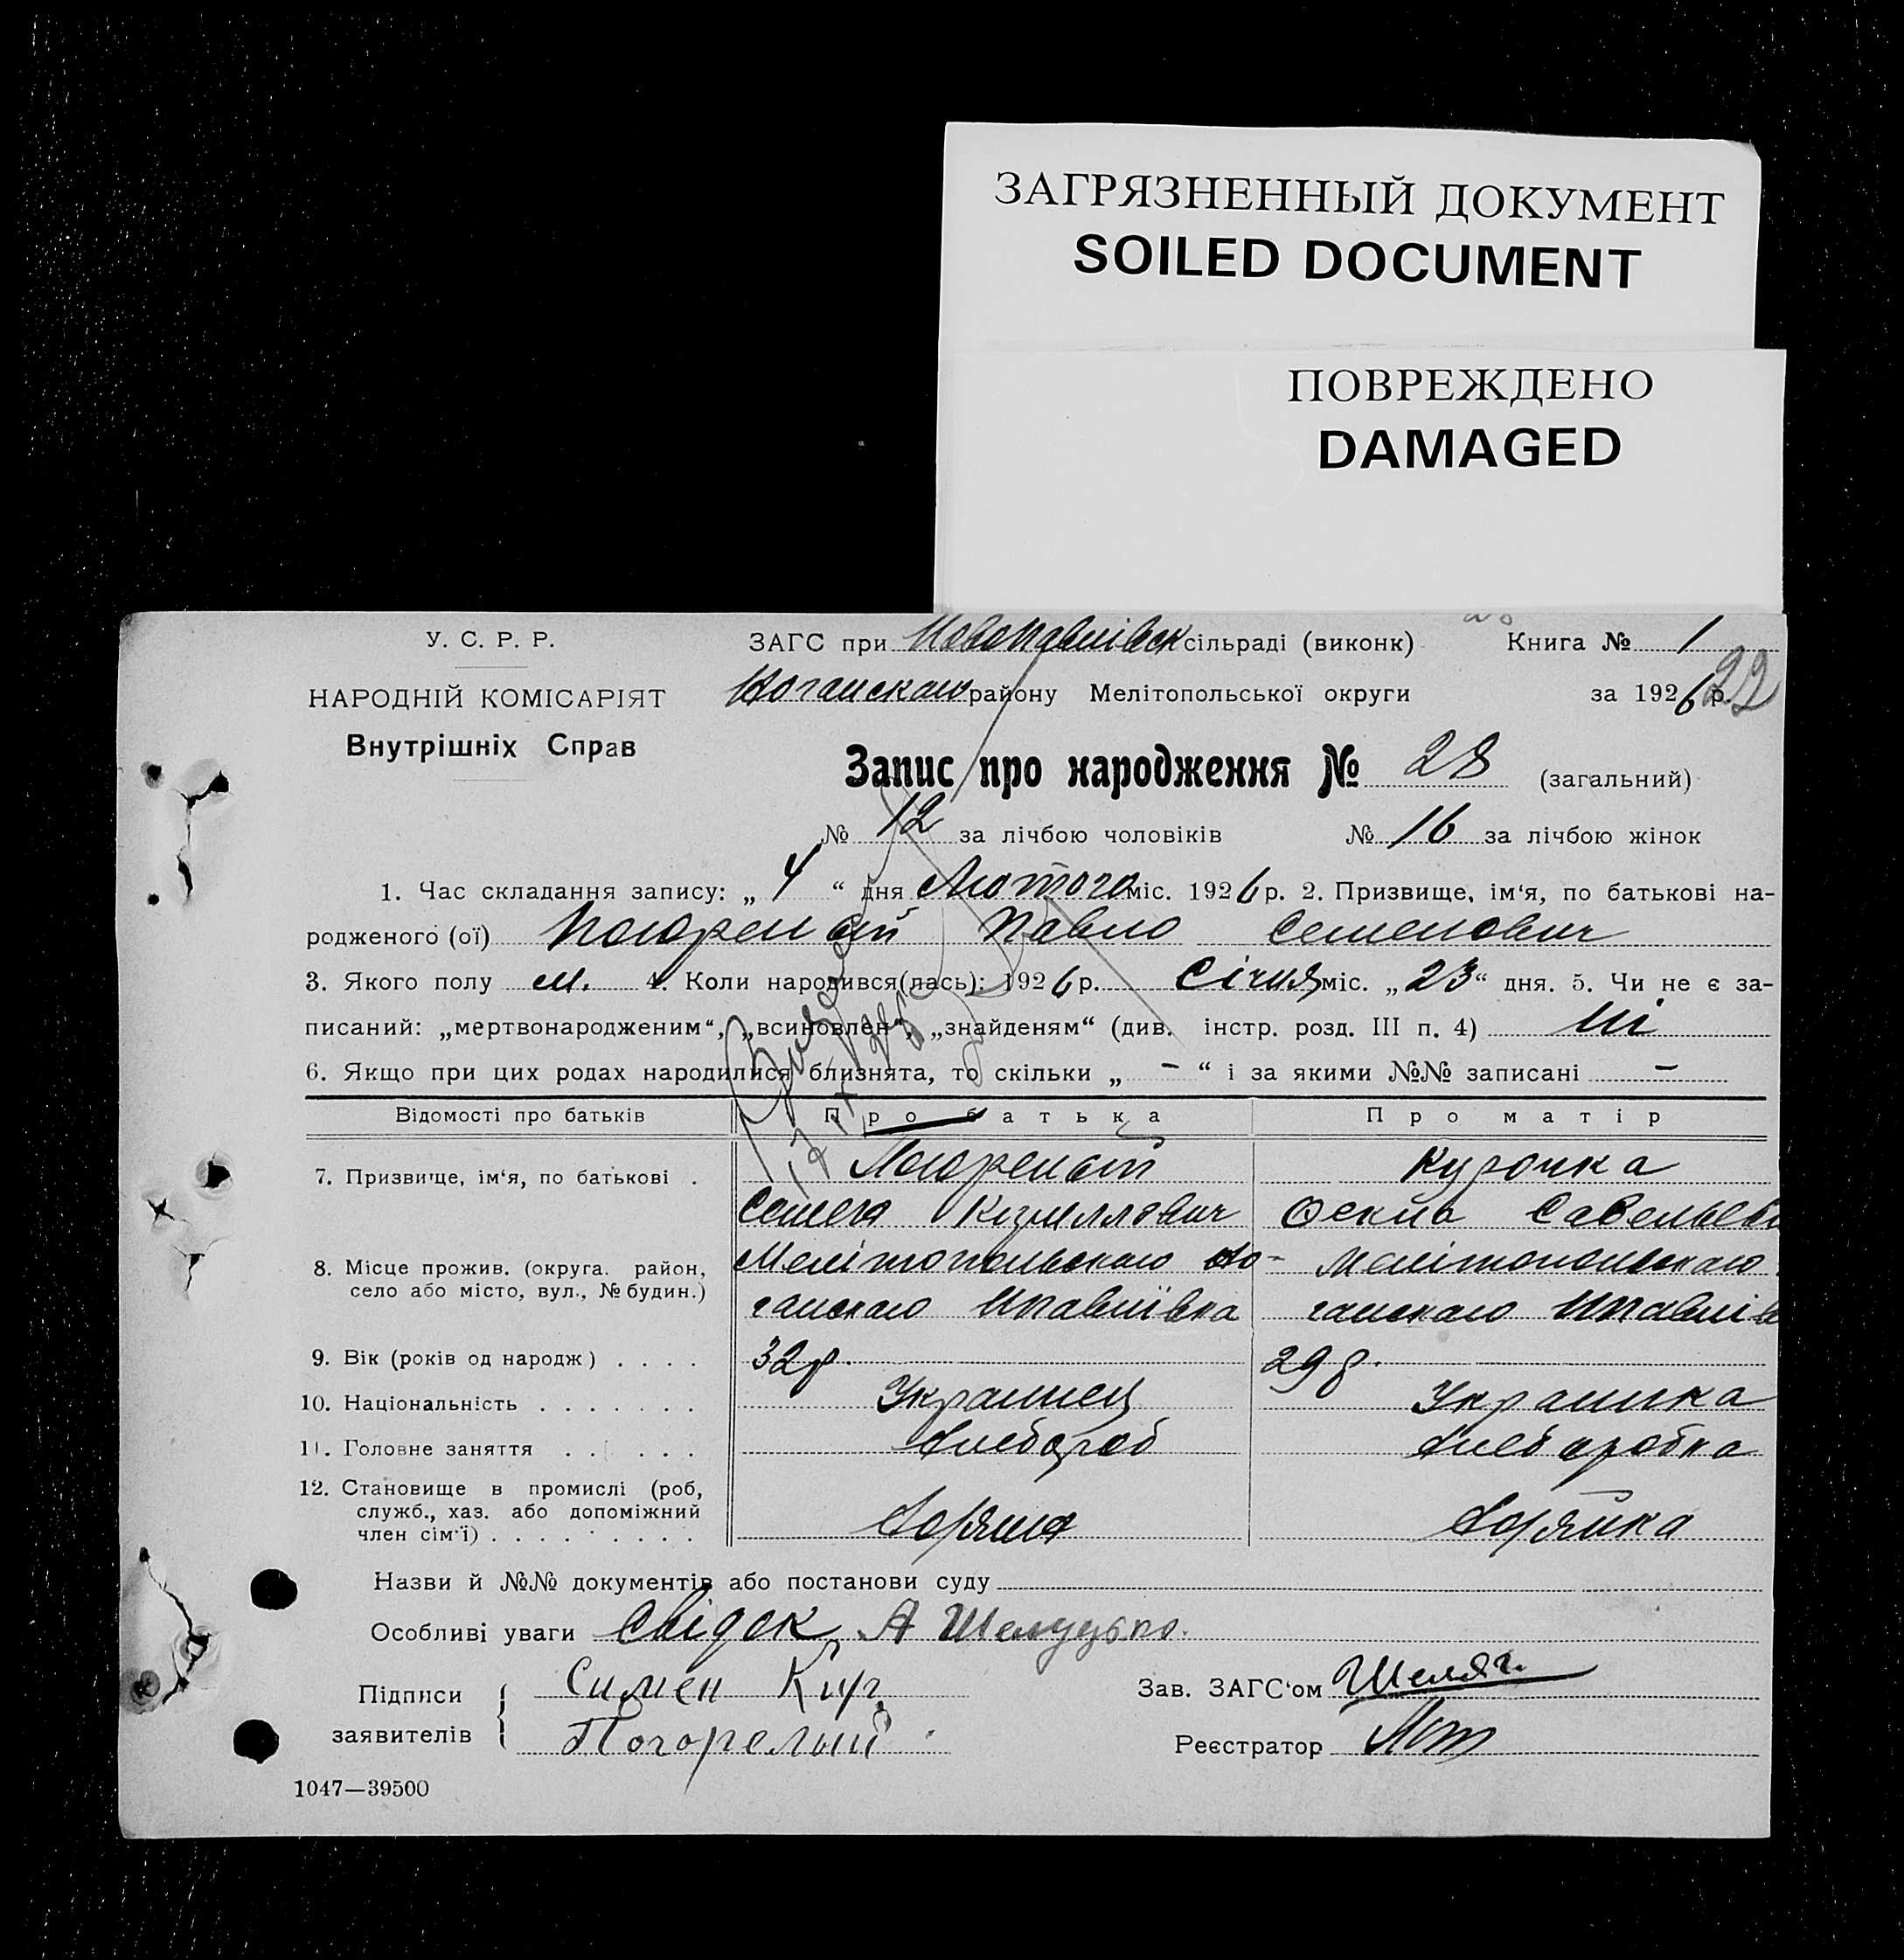 ЗАГРЯЗНЕННЫЙ ДОКУМЕНТ
SOILED DOCUMENT
ПОВРЕЖДЕНО
DAMAGED
У. С. Р. Р.
НАРОДНІЙ КОМІСАРІЯТ
Внутрішніх Справ
ЗАГС при Новопавлівск сільраді (виконк) Книга № 1
району Мелітопольської округи за 1926 р. 22
Запис про народження № 28 (загальний)
№ 12 за лічбою чоловіків № 16 за лічбою жінок
1. Час складання запису: „ 4 “ дня Лютого міс. 1926 р. 2. Призвище, ім‘я, по батькові на-
родженого (ої) Погорелой Павло Семенович
3. Якого полу м. 4. Коли народився(лась): 1926 р. Січня міс. „ 23 “ дня. 5. Чи не є за-
писаний: „мертвонародженим“, „всиновлен“, „знайденям“ (див. інстр. розд. III п. 4) Ні
6. Якщо при цих родах народилися близнята, то скільки „ - “ і за якими №№ записані -
Відомості про батьків Про батька Про матір
7. Призвище, ім‘я, по батькові . Погорелой Курочка
Семен Кириллович Савельевн
8. Місце прожив. (округа. район, Мелітопольскаго Ко- Мелітопольскаго
село або місто, вул., № будин.) ганскаго Нпавлівка ганскаго Нпавлів
9. Вік (років од народж) . . . . 32 р. 29 р.
10. Національність . . . . . . . Украинец Украинка
11. Головне заняття . . . . . . Хлебороб Хлеборобка
12. Становище в промислі (роб,
служб., хаз. або допоміжний
член сім‘ї) . . . . . . . . . Хозяин Хозяйка
Назви й №№ документів або постанови суду
Особливі уваги Свідок А Шелудько.
Підписи Симен Кир Зав. ЗАГС‘ом
заявителів Погорелый Реєстратор
1047—39500